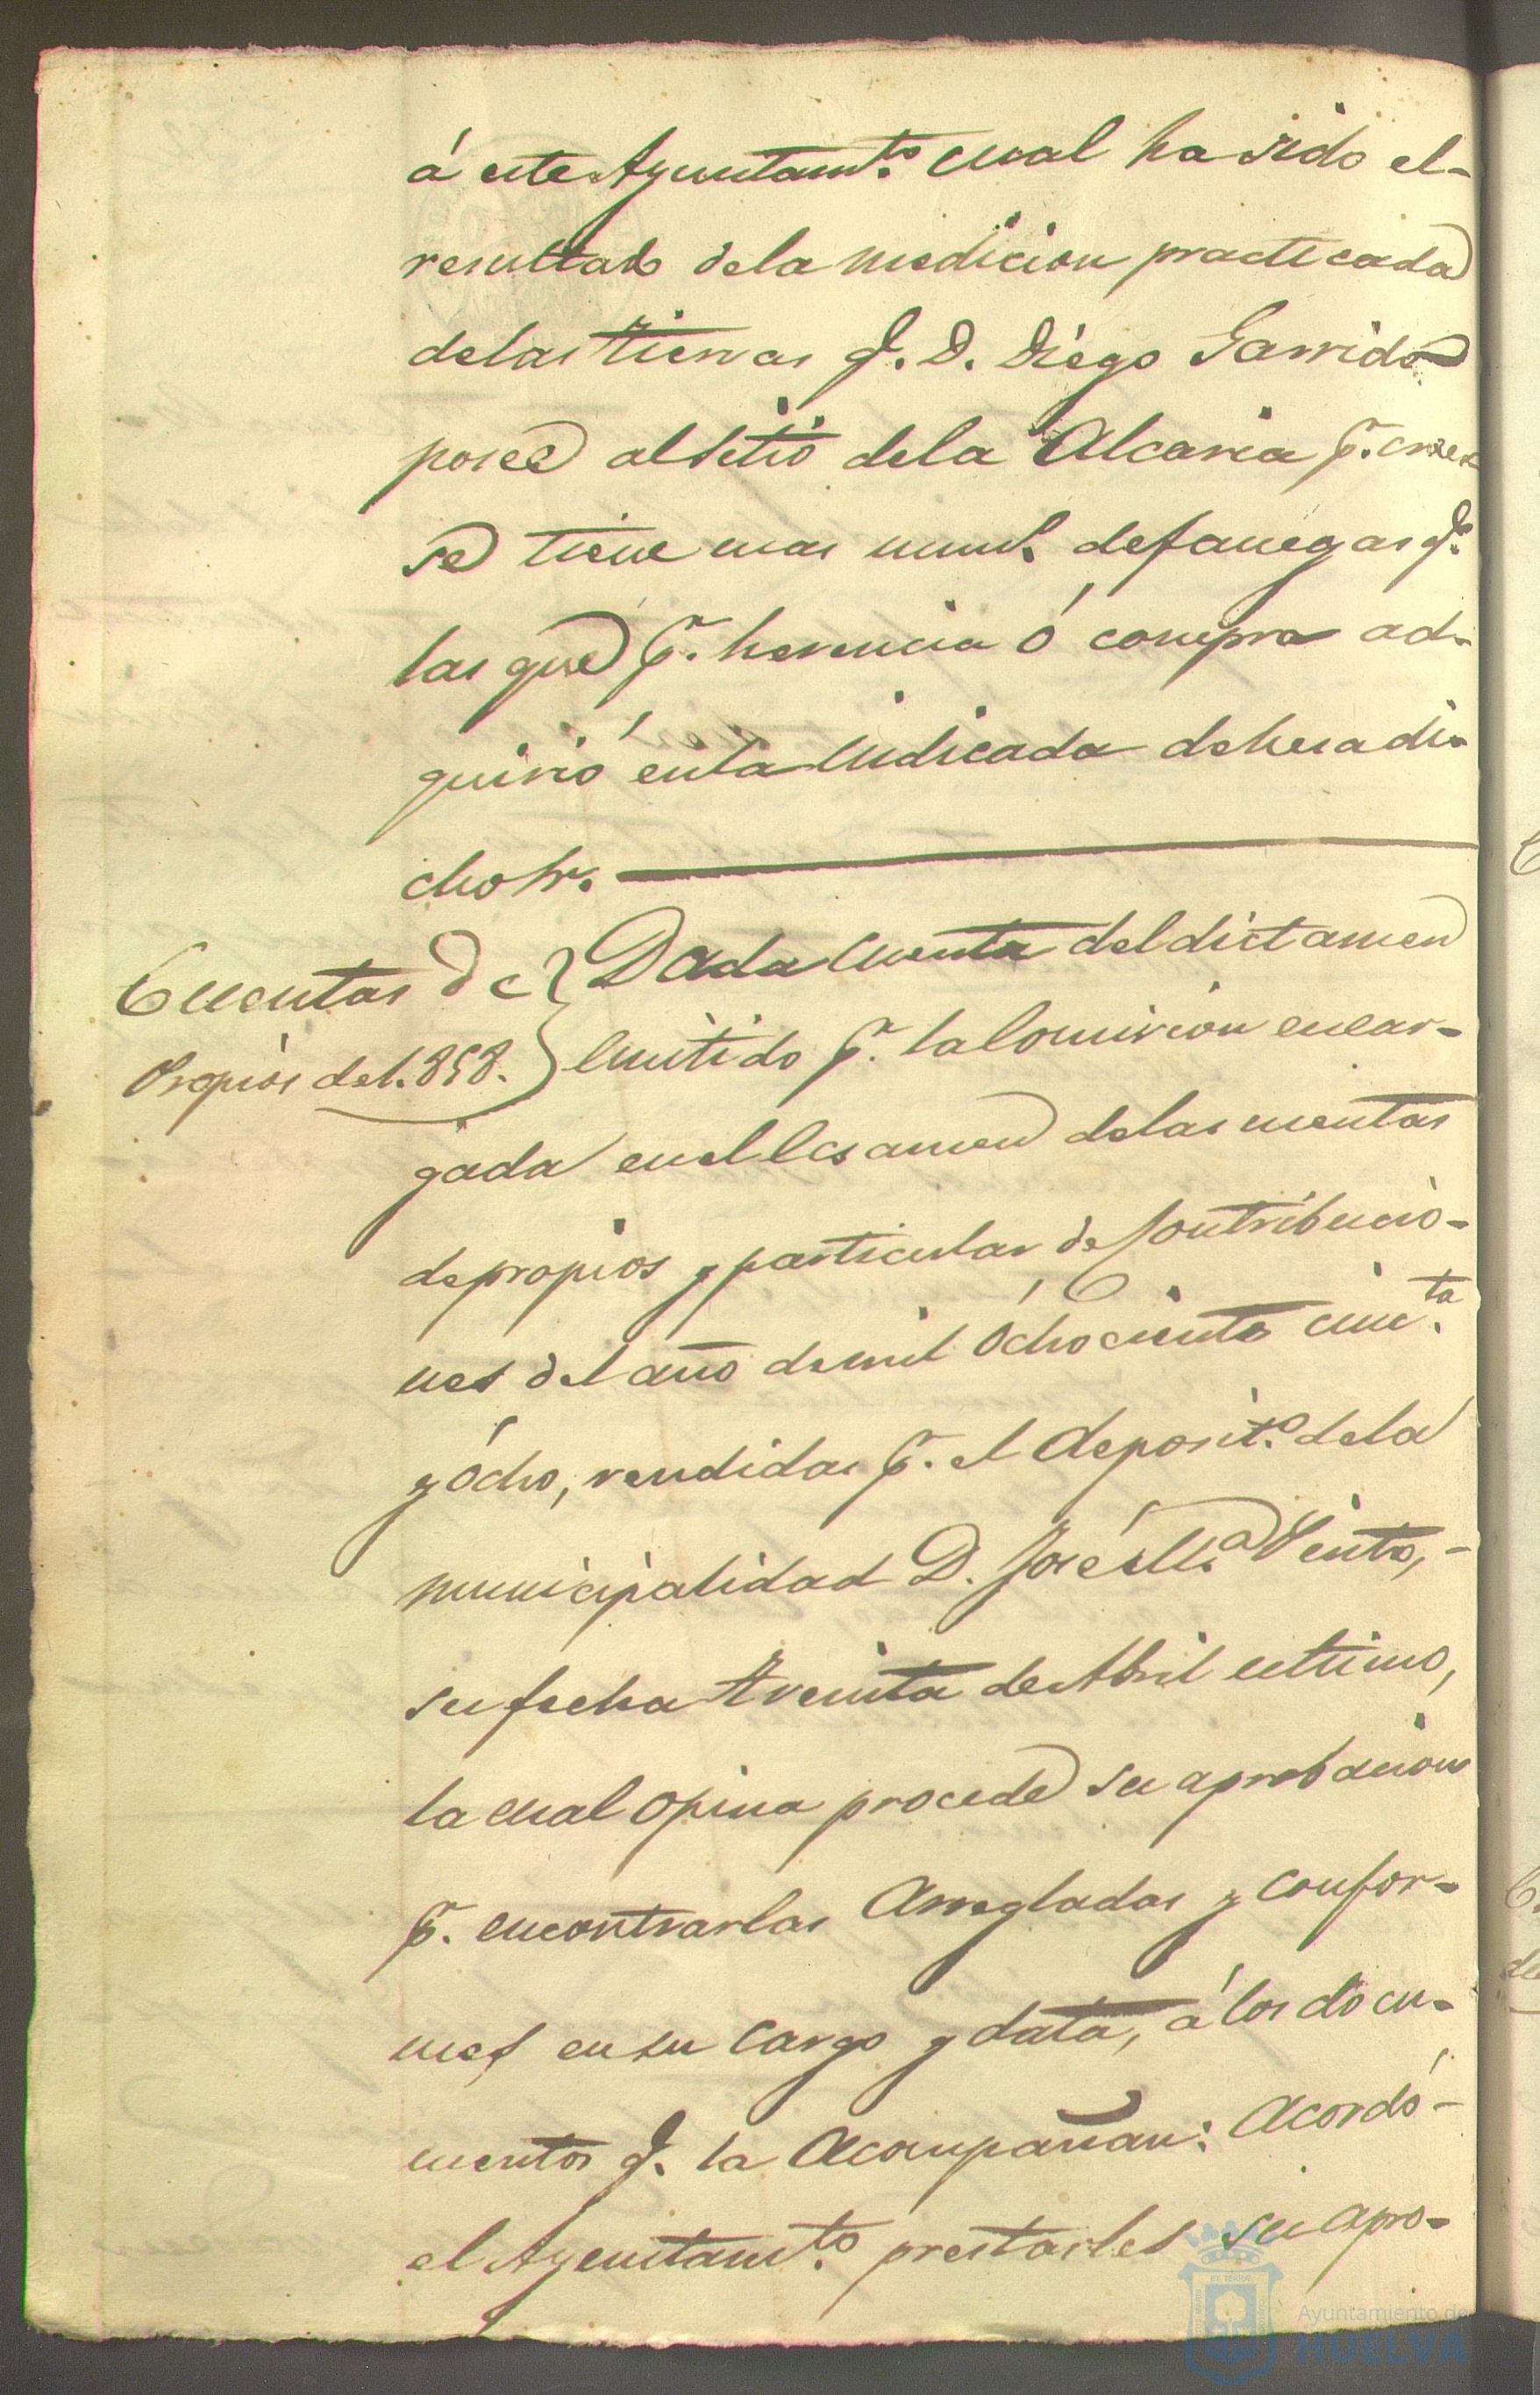 á este Ayuntamto. cual ha sido el-
resultado dela medicion practicada
delas tierras q. D. Diego Garrido
posee al sitio dela Alcaria pr. creer
se tiene mas numo. de fanegas qe.
las que pr. herencia ó compra ad-
quirió en la indicada dehesa di-
cho Sr.
Cuentas de
Propios del.858.
Dada cuenta del dictamen
emitido pr. la Comision encar-
gada en el Ecsamen delas cuentas
de propios y particular de Contribucio-
nes del año de mil ochociento cincta.
y ócho, rendidas pr. el deposito. dela
municipalidad D. José Ma. Vinto,-
su fecha treinta de Abril ultimo,
la cual opina procede su aprobacion
pr. encontrarlas arregladas y confor-
mes en su cargo y data, á los docu-
mentos q. la acompañan: Acordó-
el Ayuntamto. prestarles su apro-
Ayuntamiento de
HUELVA